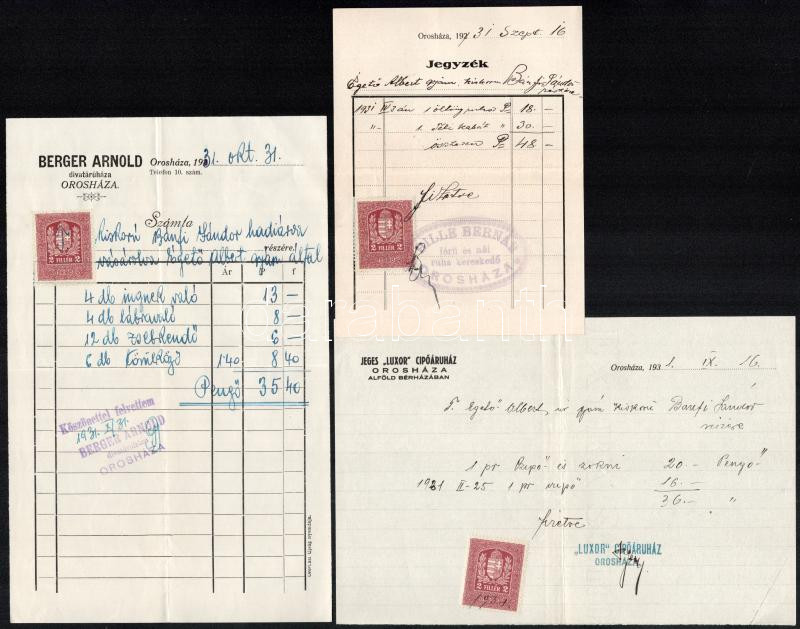 BERGER ARNOLD
divatárúháza
OROSHÁZA.
Orosháza, 1931. okt. 31.
Telefon 10. szám.
Számla
kiskorú Bánfi Sándor
részére!
vásárolva Égető Albert gyám által
Ár P f
4 db ingnek való 13 —
4 db lábravaló 8 —
12 db zsebkendő 6 —
6 db 1·40 8 40
Pengő 35 40
2 FILLÉR 2
Köszönettel felvettem
1931. X/31.
BERGER ARNOLD
divatáruháza
OROSHÁZA
Orosháza, 1931 Szept. 16
Jegyzék
Égető Albert gyám. kiskorú Bánfi Sándor
részére
1931 1 öltöny ruha P= 18.—
"- 1. Téli kabát " 30.—
összesen P= 48.—
fizetve
2 FILLÉR 2
BERNÁT
férfi és női
ruha kereskedő
OROSHÁZA
JEGES „LUXOR" CIPŐÁRUHÁZ
OROSHÁZA
ALFÖLD BÉRHÁZÁBAN
Orosháza, 1931. IX. 16.
T. Égető Albert úr gyám kiskorú Bánfi Sándor
részére
1 pr cipő és zokni 20.— Pengő
1931 II-25 1 pr cipő 16.—
36.— "
fizetve
2 FILLÉR 2
1931
„LUXOR" CIPŐÁRUHÁZ
OROSHÁZA
darabanth